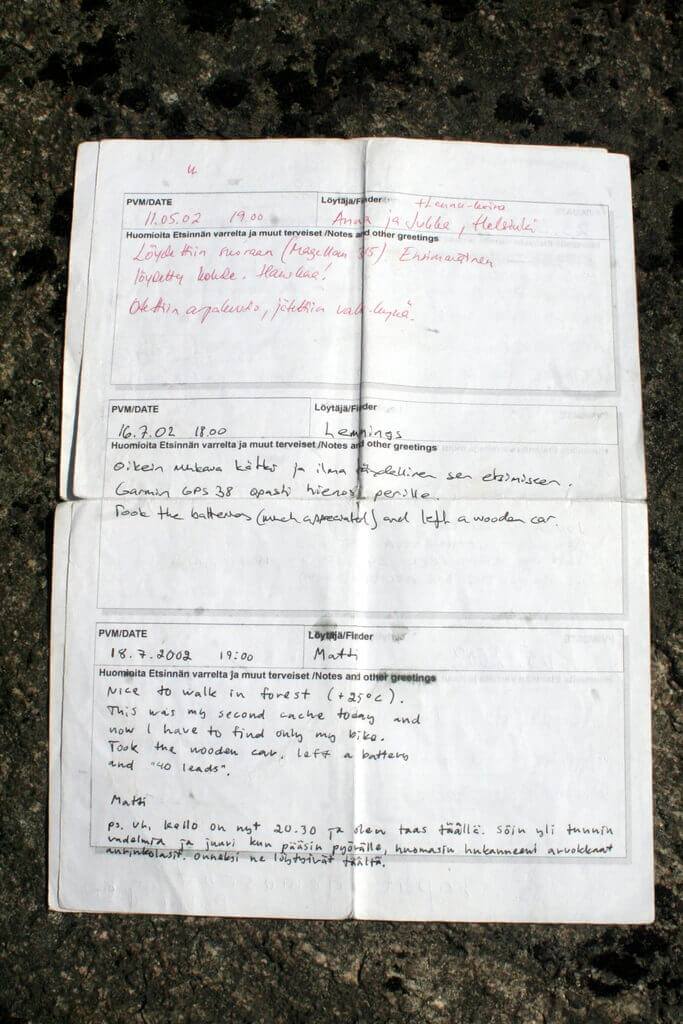 4
PVM/DATE Löytäjä/Finder + Hannu-koira
11.05.02 19.00 Anna ja Jukka, Helsinki
Huomioita Etsinnän varrelta ja muut terveiset /Notes and other greetings
Löydettiin suoraan (Magellan 315) Ensimmäinen
löydetty kohde. Hauskaa!
Otettiin, jätettiin
PVM/DATE Löytäjä/Finder
16.7.02 18.00 Lemmings
Huomioita Etsinnän varrelta ja muut terveiset /Notes and other greetings
Oikein mukava kätkö ja ilma täydellinen sen etsimiseen.
Garmin GPS 38 opasti hienosti perille.
Took the batteries (much appreciated) and left a wooden car.
PVM/DATE Löytäjä/Finder
18.7.2002 19:00 Matti
Huomioita Etsinnän varrelta ja muut terveiset /Notes and other greetings
Nice to walk in forest (+25°C).
This was my second cache today and
now I have to find only my bike.
Took the wooden car, left a battery
and "40 leads".
Matti
ps. Uh, kello on nyt 20.30 ja olen taas täällä. Söin yli tunnin
vadelmia ja juuri kun pääsin pyörälle, huomasin hukanneeni arvokkaat
aurinkolasit. Onneksi ne löytyivät täältä.